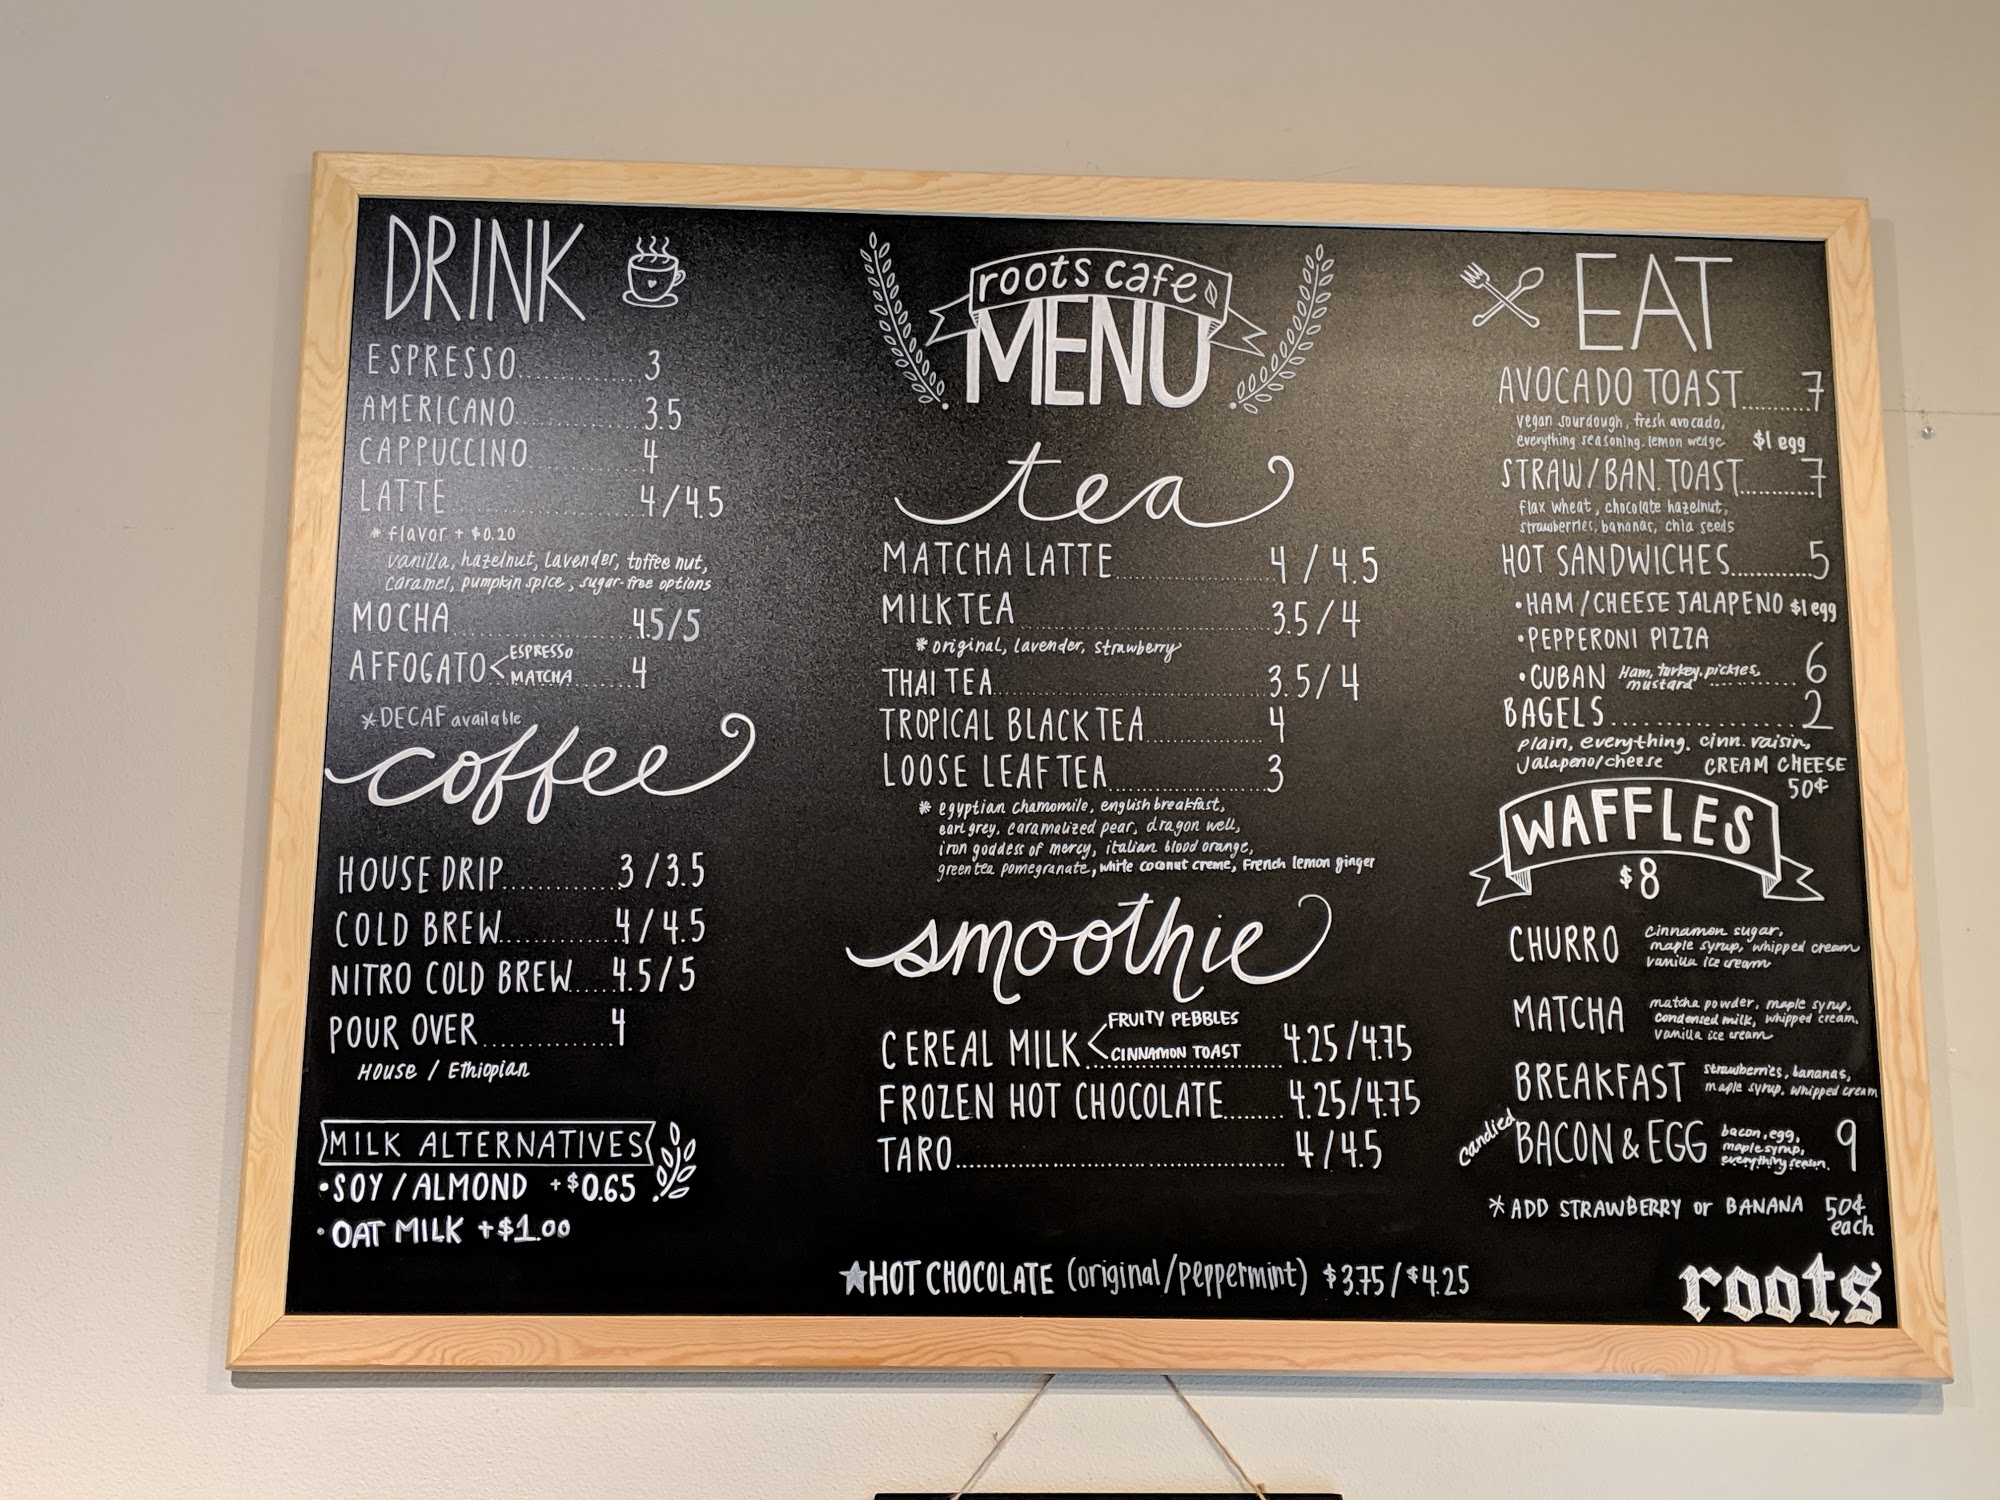 DRINK
ESPRESSO 3
AMERICANO 3.5
CAPPUCCINO 4
LATTE 4/4.5
* flavor + $0.20
vanilla, hazelnut, lavender, toffee nut,
caramel, pumpkin spice, sugar-free options
MOCHA 4.5/5
AFFOGATO < ESPRESSO
MATCHA 4
*DECAF available
coffee
HOUSE DRIP 3/3.5
COLD BREW 4/4.5
NITRO COLD BREW 4.5/5
POUR OVER 4
HOUSE / Ethiopian
MILK ALTERNATIVES
•SOY/ALMOND +$0.65
•OAT MILK +$1.00
roots cafe
MENU
tea
MATCHA LATTE 4/4.5
MILK TEA 3.5/4
* original, lavender, strawberry
THAI TEA 3.5/4
TROPICAL BLACK TEA 4
LOOSE LEAF TEA 3
* egyptian chamomile, english breakfast,
earl grey, caramalized pear, dragon well,
iron goddess of mercy, italian blood orange,
green tea pomegranate, white coconut creme, French lemon ginger
smoothie
CEREAL MILK < FRUITY PEBBLES
CINNAMON TOAST 4.25/4.75
FROZEN HOT CHOCOLATE 4.25/4.75
TARO 4/4.5
★HOT CHOCOLATE (original/peppermint) $3.75/$4.25
EAT
AVOCADO TOAST 7
vegan sourdough, fresh avocado,
everything seasoning, lemon wedge $1 egg
STRAW/BAN. TOAST 7
flax wheat, chocolate hazelnut,
strawberries, bananas, chia seeds
HOT SANDWICHES 5
•HAM/CHEESE JALAPENO $1 egg
•PEPPERONI PIZZA
•CUBAN Ham, turkey, pickles,
mustard 6
BAGELS 2
plain, everything, cinn. raisin,
jalapeno/cheese CREAM CHEESE
50¢
WAFFLES
$8
CHURRO cinnamon sugar,
maple syrup, whipped cream
vanilla ice cream
MATCHA matcha powder, maple syrup,
condensed milk, whipped cream,
vanilla ice cream
BREAKFAST strawberries, bananas,
maple syrup, whipped cream
candied BACON & EGG bacon, egg,
maple syrup,
everything season. 9
*ADD STRAWBERRY or BANANA 50¢
each
roots